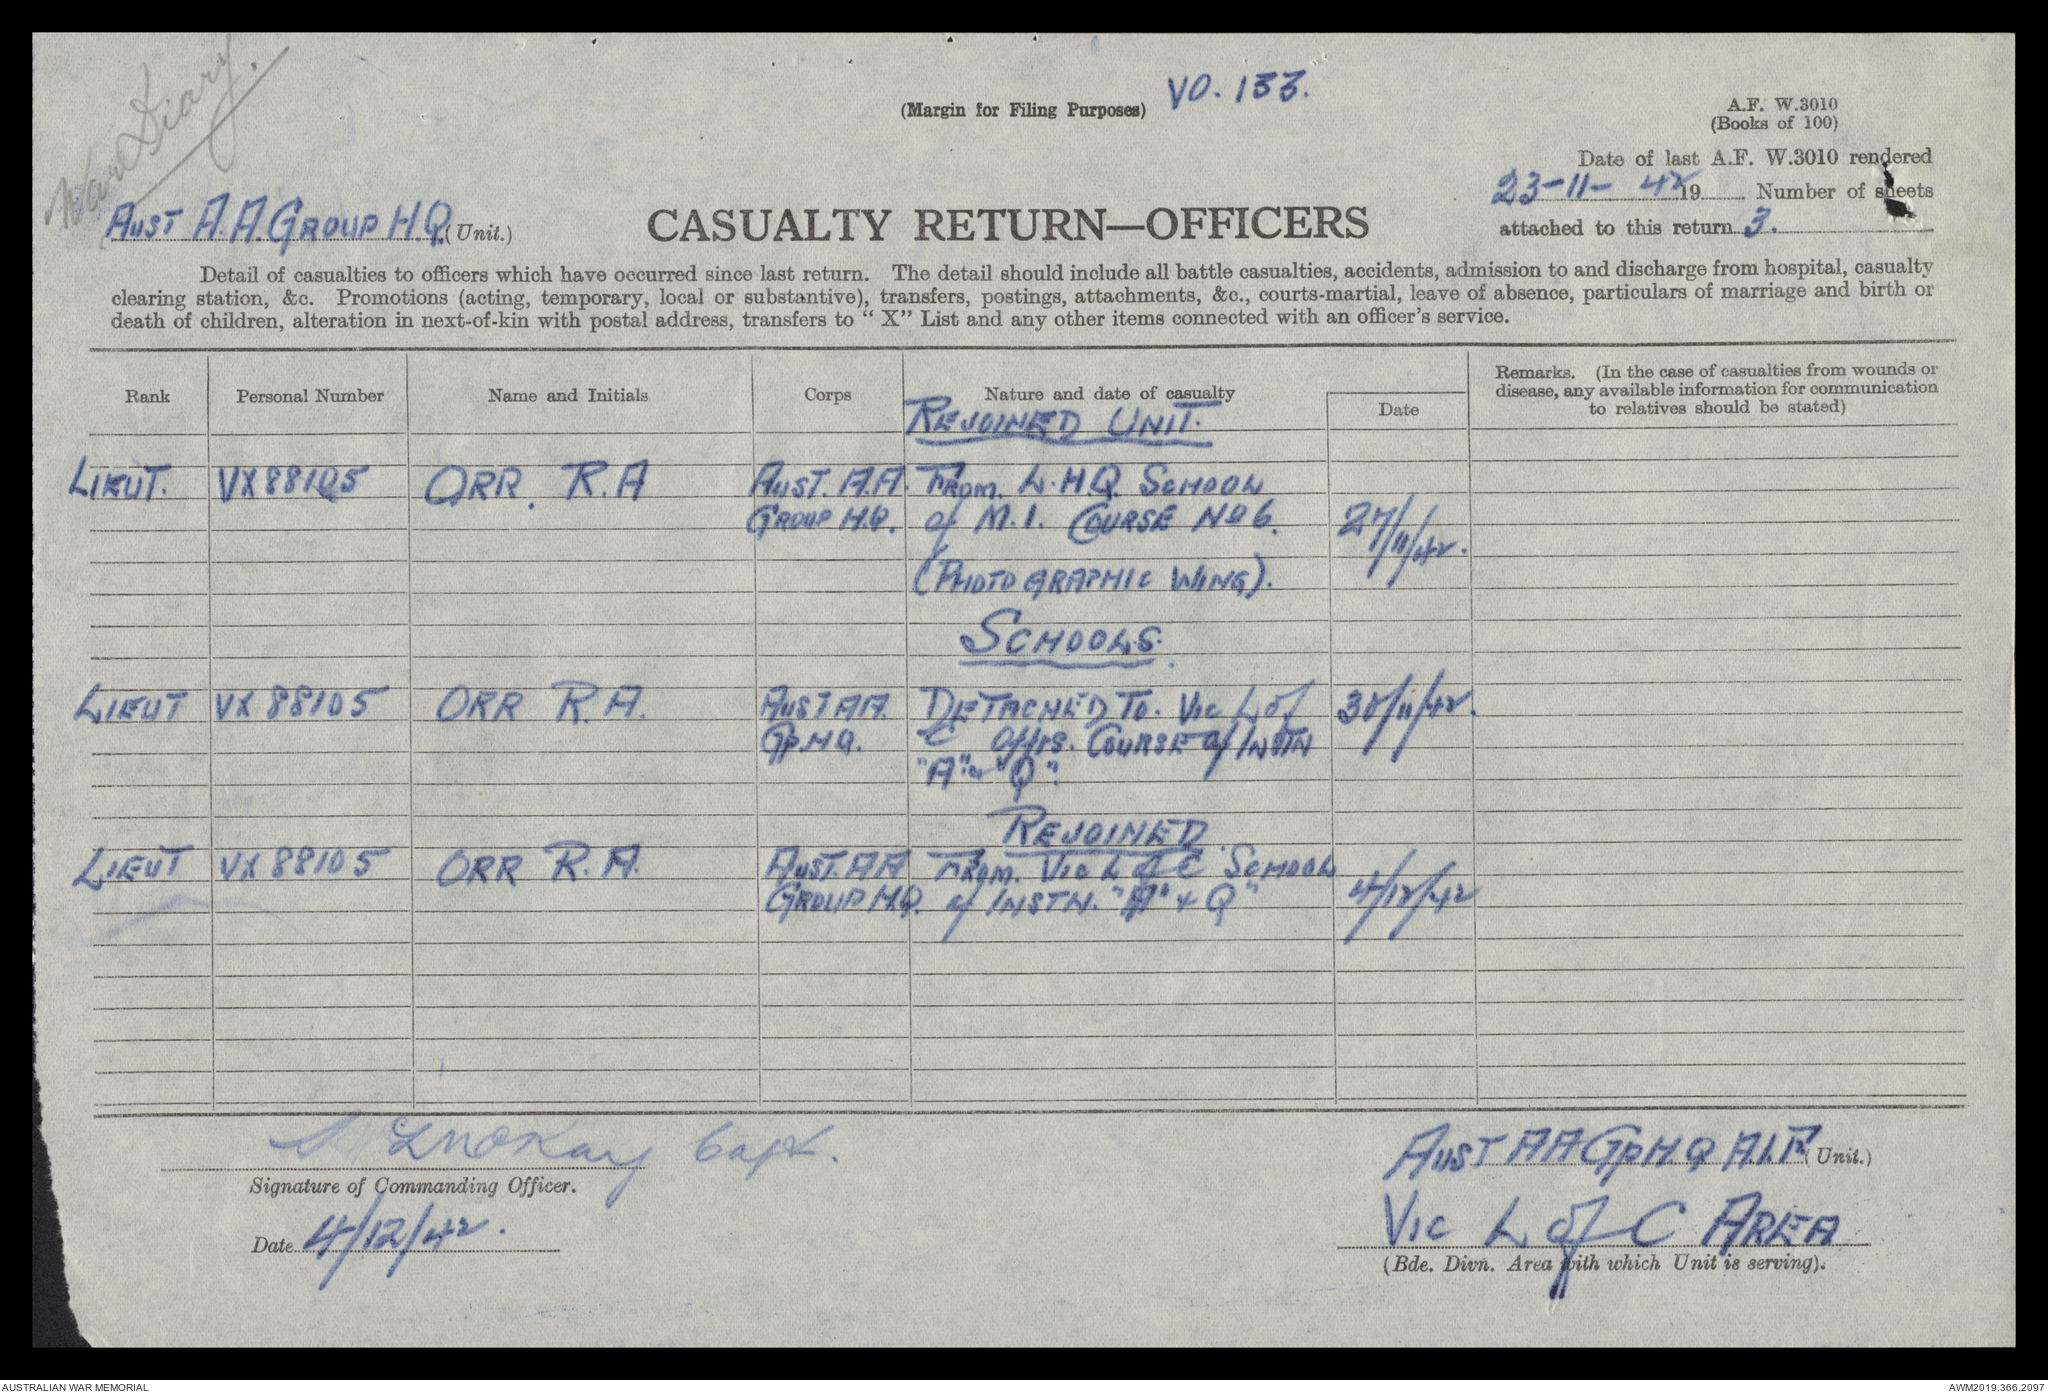 War Diary.
(Margin for Filing Purposes) VO. 133.
A.F. W.3010
(Books of 100)
Date of last A.F. W.3010 rendered
23-11-42 19 Number of sheets
attached to this return 3.
AUST A.A. GROUP H.Q. (Unit.)
CASUALTY RETURN—OFFICERS
Detail of casualties to officers which have occurred since last return. The detail should include all battle casualties, accidents, admission to and discharge from hospital, casualty
clearing station, &c. Promotions (acting, temporary, local or substantive), transfers, postings, attachments, &c., courts-martial, leave of absence, particulars of marriage and birth or
death of children, alteration in next-of-kin with postal address, transfers to "X" List and any other items connected with an officer's service.
Rank Personal Number Name and Initials Corps Nature and date of casualty Date Remarks. (In the case of casualties from wounds or
disease, any available information for communication
to relatives should be stated)
REJOINED UNIT.
LIEUT. VX88105 ORR. R.A AUST. A.A. FROM. L.H.Q. SCHOOL
GROUP H.Q. of M.I. COURSE No 6. 27/11/42.
(PHOTOGRAPHIC WING).
SCHOOLS.
LIEUT VX88105 ORR R.A. AUST AA. DETACHED TO. VIC L of 30/11/42.
GP.HQ. C Offrs. COURSE of INSTN
"A" & "Q".
REJOINED.
LIEUT VX88105 ORR R.A. AUST. AA FROM. VIC L of C SCHOOL
GROUP H.Q. of INSTN. "A" & Q" 4/12/42
Capt.
Signature of Commanding Officer.
Date 4/12/42.
AUST AA GP H.Q A.I.F. (Unit.)
VIC L of C AREA
(Bde. Divn. Area with which Unit is serving).
AUSTRALIAN WAR MEMORIAL
AWM2019.366.2097